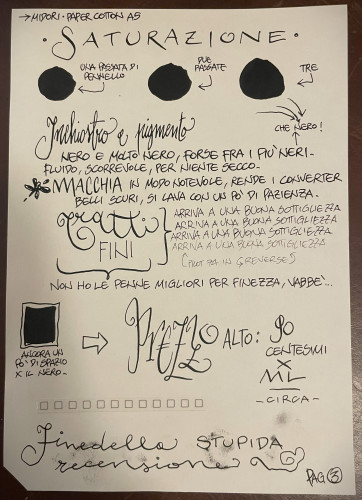 → MIDORI - PAPER COTTON A5
· SATURAZIONE ·
UNA PASSATA DI PENNELLO
DUE PASSATE
TRE
CHE NERO!
Inchiostro e pigmento
NERO E MOLTO NERO, FORSE FRA I PIU' NERI -
FLUIDO, SCORREVOLE, PER NIENTE SECCO -
MACCHIA IN MODO NOTEVOLE, RENDE I CONVERTER
BELLI SCURI, SI LAVA CON UN PO' DI PAZIENZA -
Tratti
FINI
ARRIVA A UNA BUONA SOTTIGLIEZZA
ARRIVA A UNA BUONA SOTTIGLIEZZA
ARRIVA A UNA BUONA SOTTIGLIEZZA
ARRIVA A UNA BUONA SOTTIGLIEZZA
(PILOT IN REVERSE)
NON HO LE PENNE MIGLIORI PER FINEZZA, VABBE'...
ANCORA UN
PO' DI SPAZIO
X IL NERO -
PREZZO
ALTO:
90
CENTESIMI
X
ML
- CIRCA -
Fine della STUPIDA
recensione
PAG ③